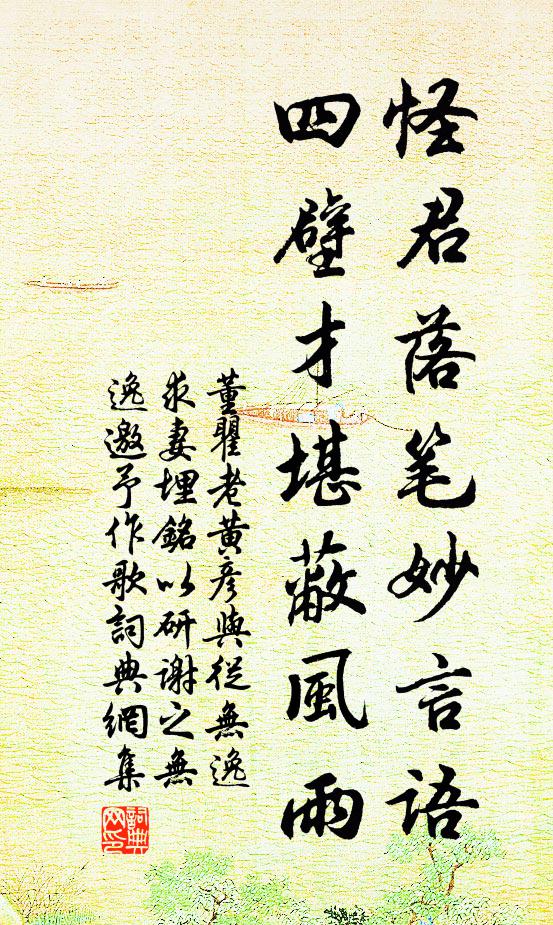 怪君落笔妙言语
四壁才堪蔽風雨
董瞿老黄彦與從無逸
求妻埋銘以研謝之無
逸邀予作歌詞典網集
詞典
网印